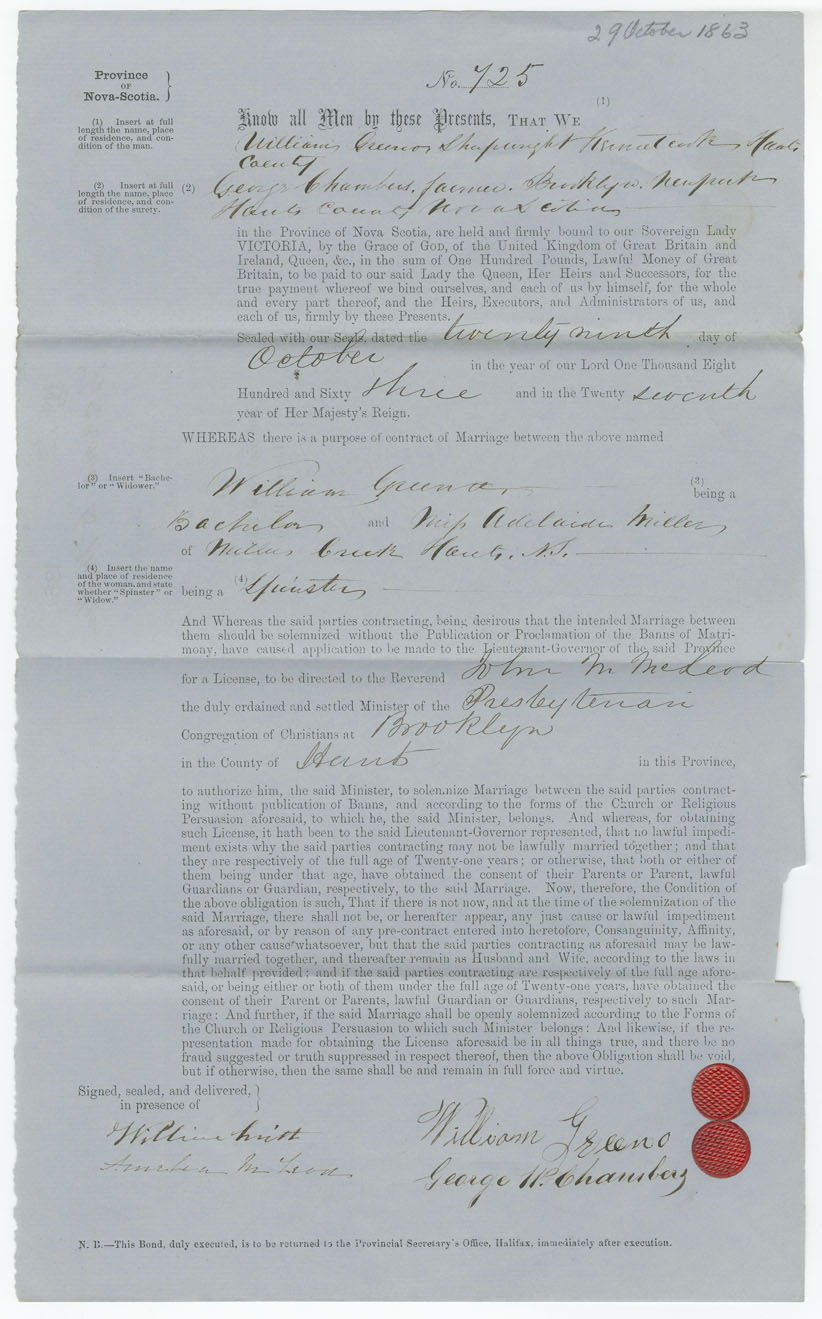 29 October 1863
Province
OF
Nova-Scotia.
No. 725
(1) Insert at full
length the name, place
of residence, and con-
dition of the man.
(1)
Know all Men by these Presents, THAT WE
William Greeno Shipwright Kennetcook Hants
County
(2) Insert at full
length the name, place
of residence, and con-
dition of the surety.
(2) George Chambers, farmer. Brooklyn. Newport
Hants County Nova Scotia
in the Province of Nova Scotia, are held and firmly bound to our Sovereign Lady
VICTORIA, by the Grace of GOD, of the United Kingdom of Great Britain and
Ireland, Queen, &c., in the sum of One Hundred Pounds, Lawful Money of Great
Britain, to be paid to our said Lady the Queen, Her Heirs and Successors, for the
true payment whereof we bind ourselves, and each of us by himself, for the whole
and every part thereof, and the Heirs, Executors, and Administrators of us, and
each of us, firmly by these Presents.
Sealed with our Seals, dated the twenty ninth day of
October in the year of our Lord One Thousand Eight
Hundred and Sixty three and in the Twenty seventh
year of Her Majesty's Reign.
WHEREAS there is a purpose of contract of Marriage between the above named
(3) Insert "Bache-
lor" or "Widower."
William Greeno (3) being a
Bachelor and Miss Adelaide Miller
of Millers Creek Hants. N.S.
(4) Insert the name
and place of residence
of the woman, and state
whether "Spinster" or
"Widow."
being a (4) Spinster
And Whereas the said parties contracting, being desirous that the intended Marriage between
them should be solemnized without the Publication or Proclamation of the Banns of Matri-
mony, have caused application to be made to the Lieutenant-Governor of the said Province
for a License, to be directed to the Reverend John M McLeod
the duly ordained and settled Minister of the Presbyterian
Congregation of Christians at Brooklyn
in the County of Hants in this Province,
to authorize him, the said Minister, to solemnize Marriage between the said parties contract-
ing without publication of Banns, and according to the forms of the Church or Religious
Persuasion aforesaid, to which he, the said Minister, belongs. And whereas, for obtaining
such License, it hath been to the said Lieutenant-Governor represented, that no lawful impedi-
ment exists why the said parties contracting may not be lawfully married together; and that
they are respectively of the full age of Twenty-one years; or otherwise, that both or either of
them being under that age, have obtained the consent of their Parents or Parent, lawful
Guardians or Guardian, respectively, to the said Marriage. Now, therefore, the Condition of
the above obligation is such, That if there is not now, and at the time of the solemnization of the
said Marriage, there shall not be, or hereafter appear, any just cause or lawful impediment
as aforesaid, or by reason of any pre-contract entered into heretofore, Consanguinity, Affinity,
or any other cause whatsoever, but that the said parties contracting as aforesaid may be law-
fully married together, and thereafter remain as Husband and Wife, according to the laws in
that behalf provided; and if the said parties contracting are respectively of the full age afore-
said, or being either or both of them under the full age of Twenty-one years, have obtained the
consent of their Parent or Parents, lawful Guardian or Guardians, respectively to such Mar-
riage: And further, if the said Marriage shall be openly solemnized according to the Forms of
the Church or Religious Persuasion to which such Minister belongs: And likewise, if the re-
presentation made for obtaining the License aforesaid be in all things true, and there be no
fraud suggested or truth suppressed in respect thereof, then the above Obligation shall be void,
but if otherwise, then the same shall be and remain in full force and virtue.
Signed, sealed, and delivered,
in presence of
William Smith
Amelia McLeod
William Greeno
George W. Chambers
N. B.—This Bond, duly executed, is to be returned to the Provincial Secretary's Office, Halifax, immediately after execution.